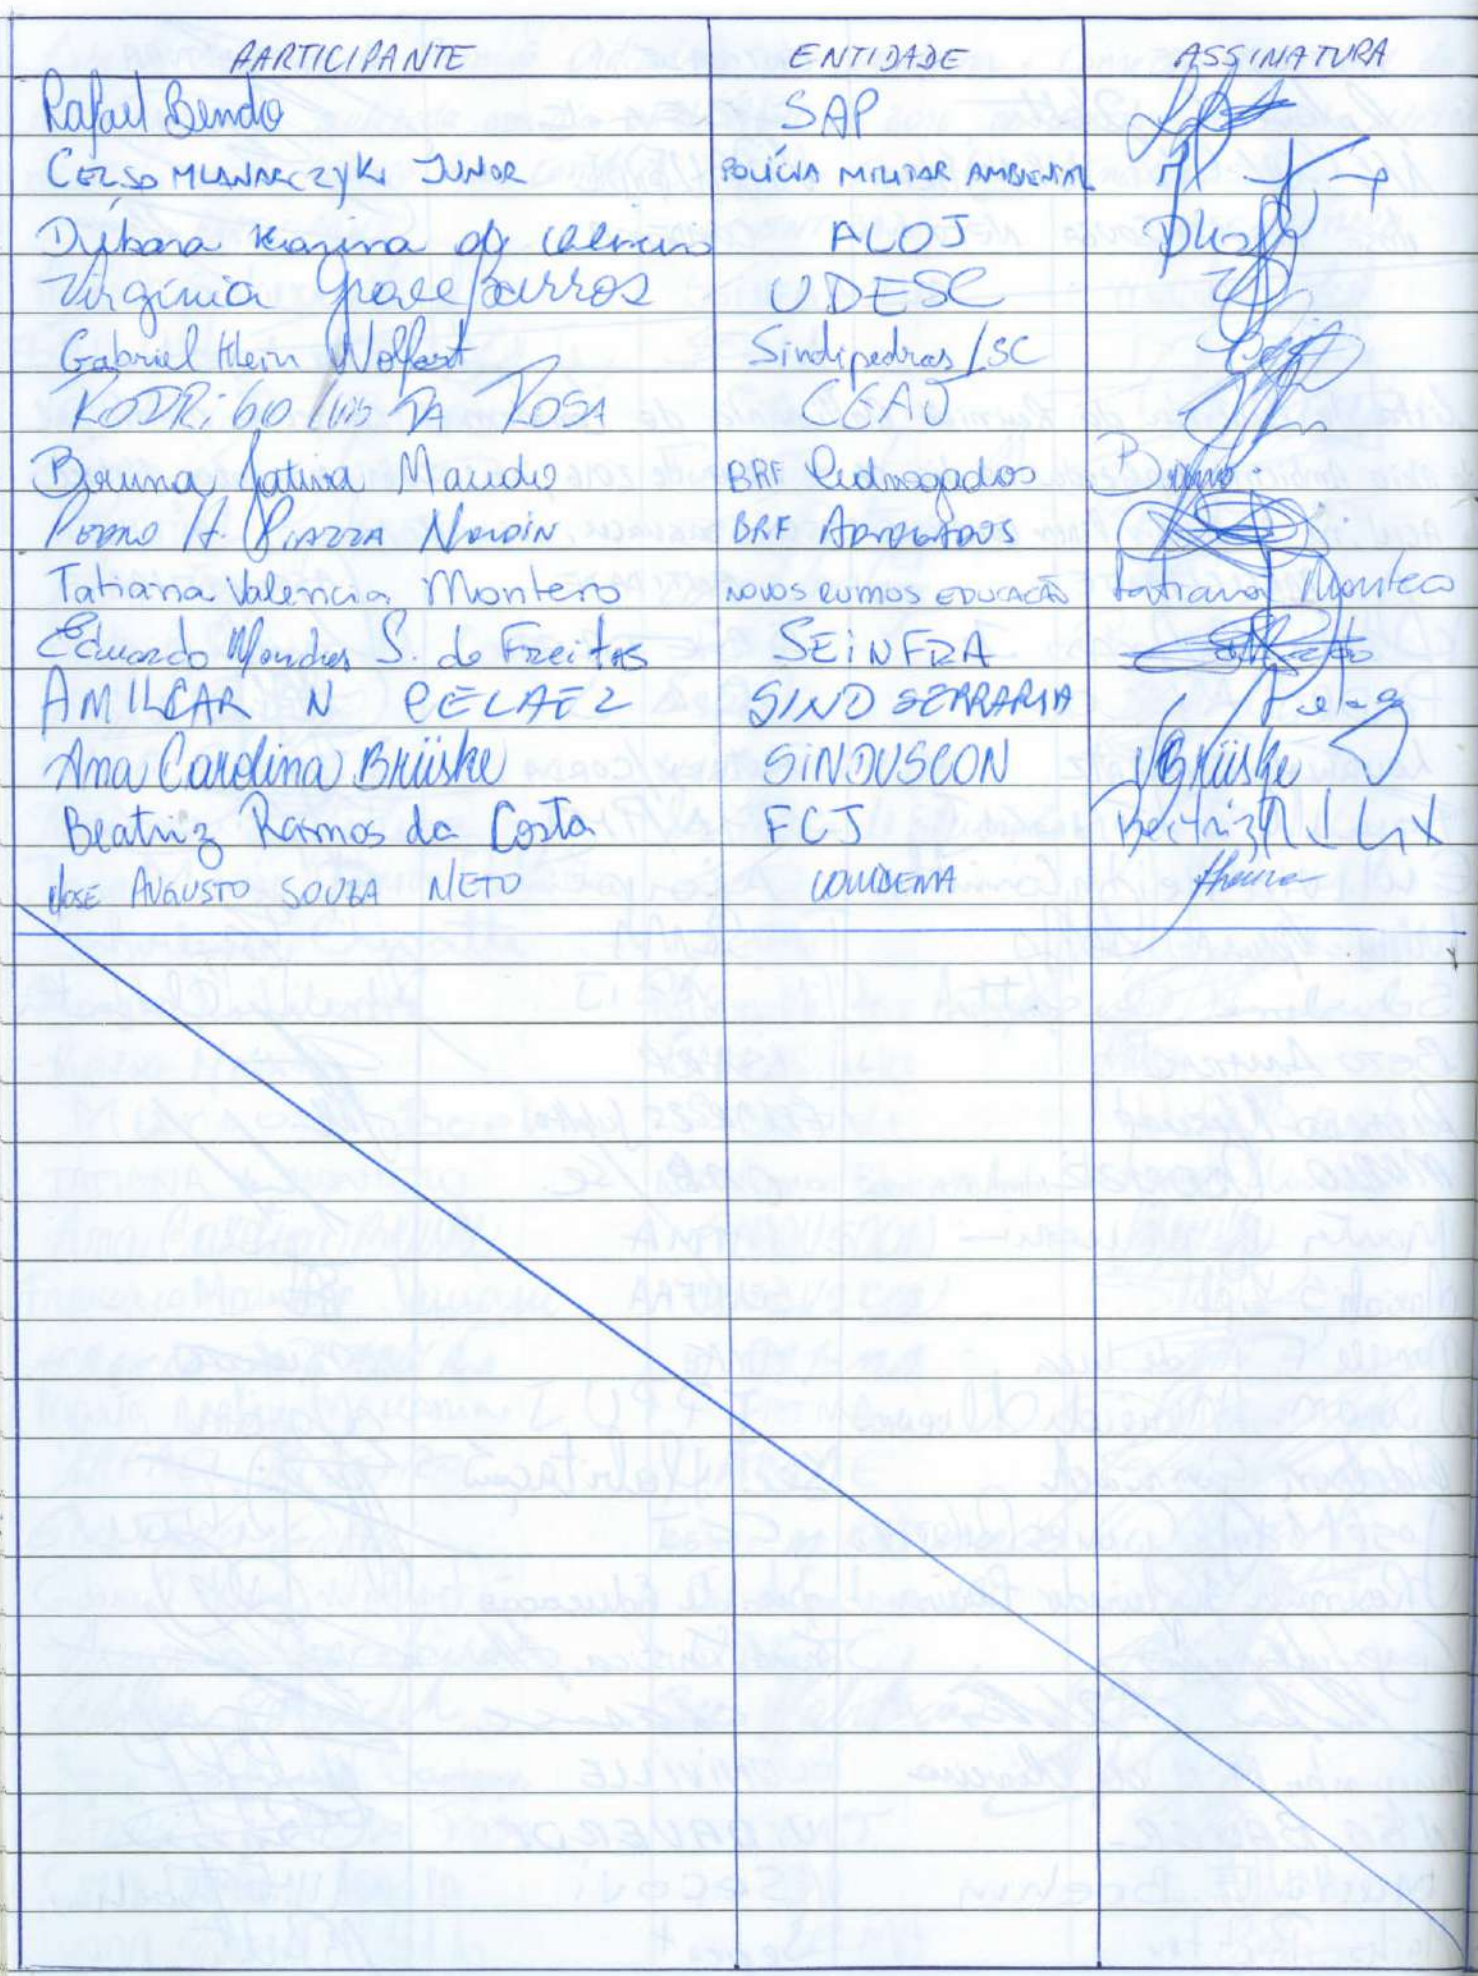 PARTICIPANTE ENTIDADE ASSINATURA
Rafael Bendo SAP
CELSO MLANARCZYKI JUNIOR POLÍCIA MILITAR AMBIENTAL
Débora Karina de ACOJ
Virginia Grace Barros UDESC
Gabriel Klein Wolfart Sindipedras/SC
RODRIGO LUIS DA ROSA CEAJ
Bruna Maudio BRF Bruna
PEDRO H. PIAZZA NOLDIN BRF AGREGADOS
Tatiana Valencia Montero NOVOS RUMOS EDUCAÇÃO Tatiana Montero
Eduardo Mendes S. de Freitas SEINFRA
AMILCAR N PELAEZ SIND SERRARIA Pelaez
Ana Carolina Brüske SINDUSCON Brüske
Beatriz Ramos da Costa FCJ Beatriz
JOSE AUGUSTO SOUZA NETO COMDEMA